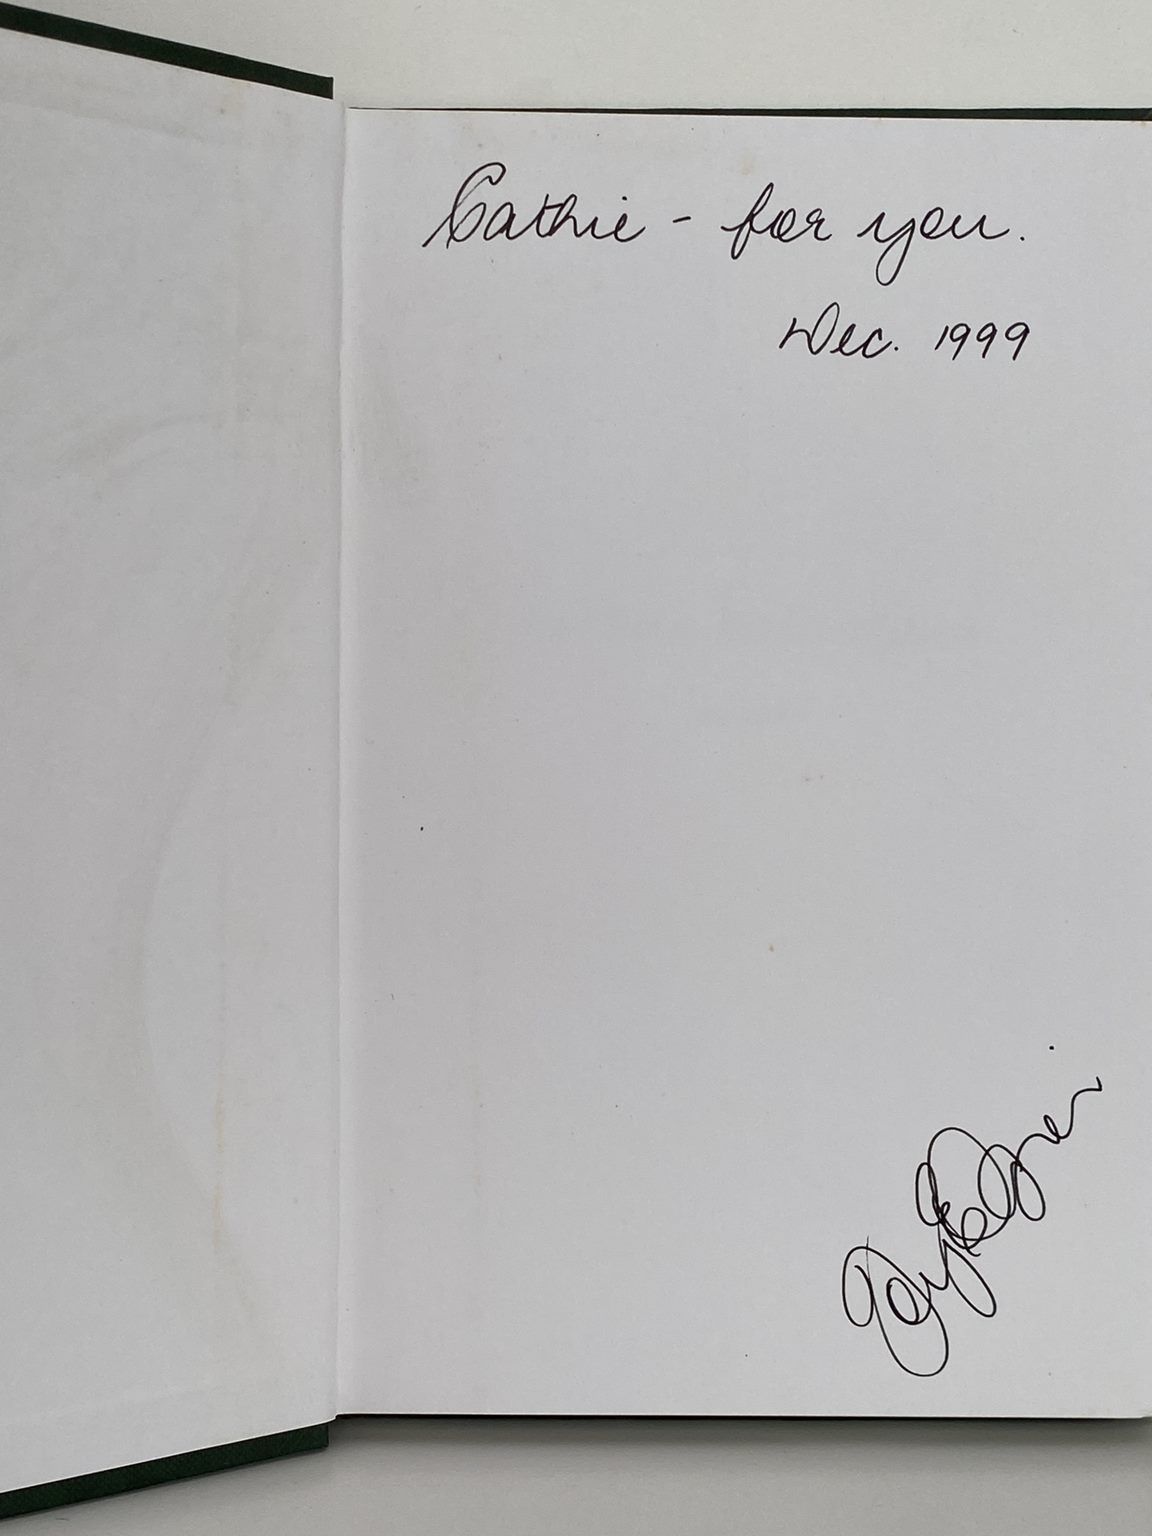 Cathie - for you.
Dec. 1999